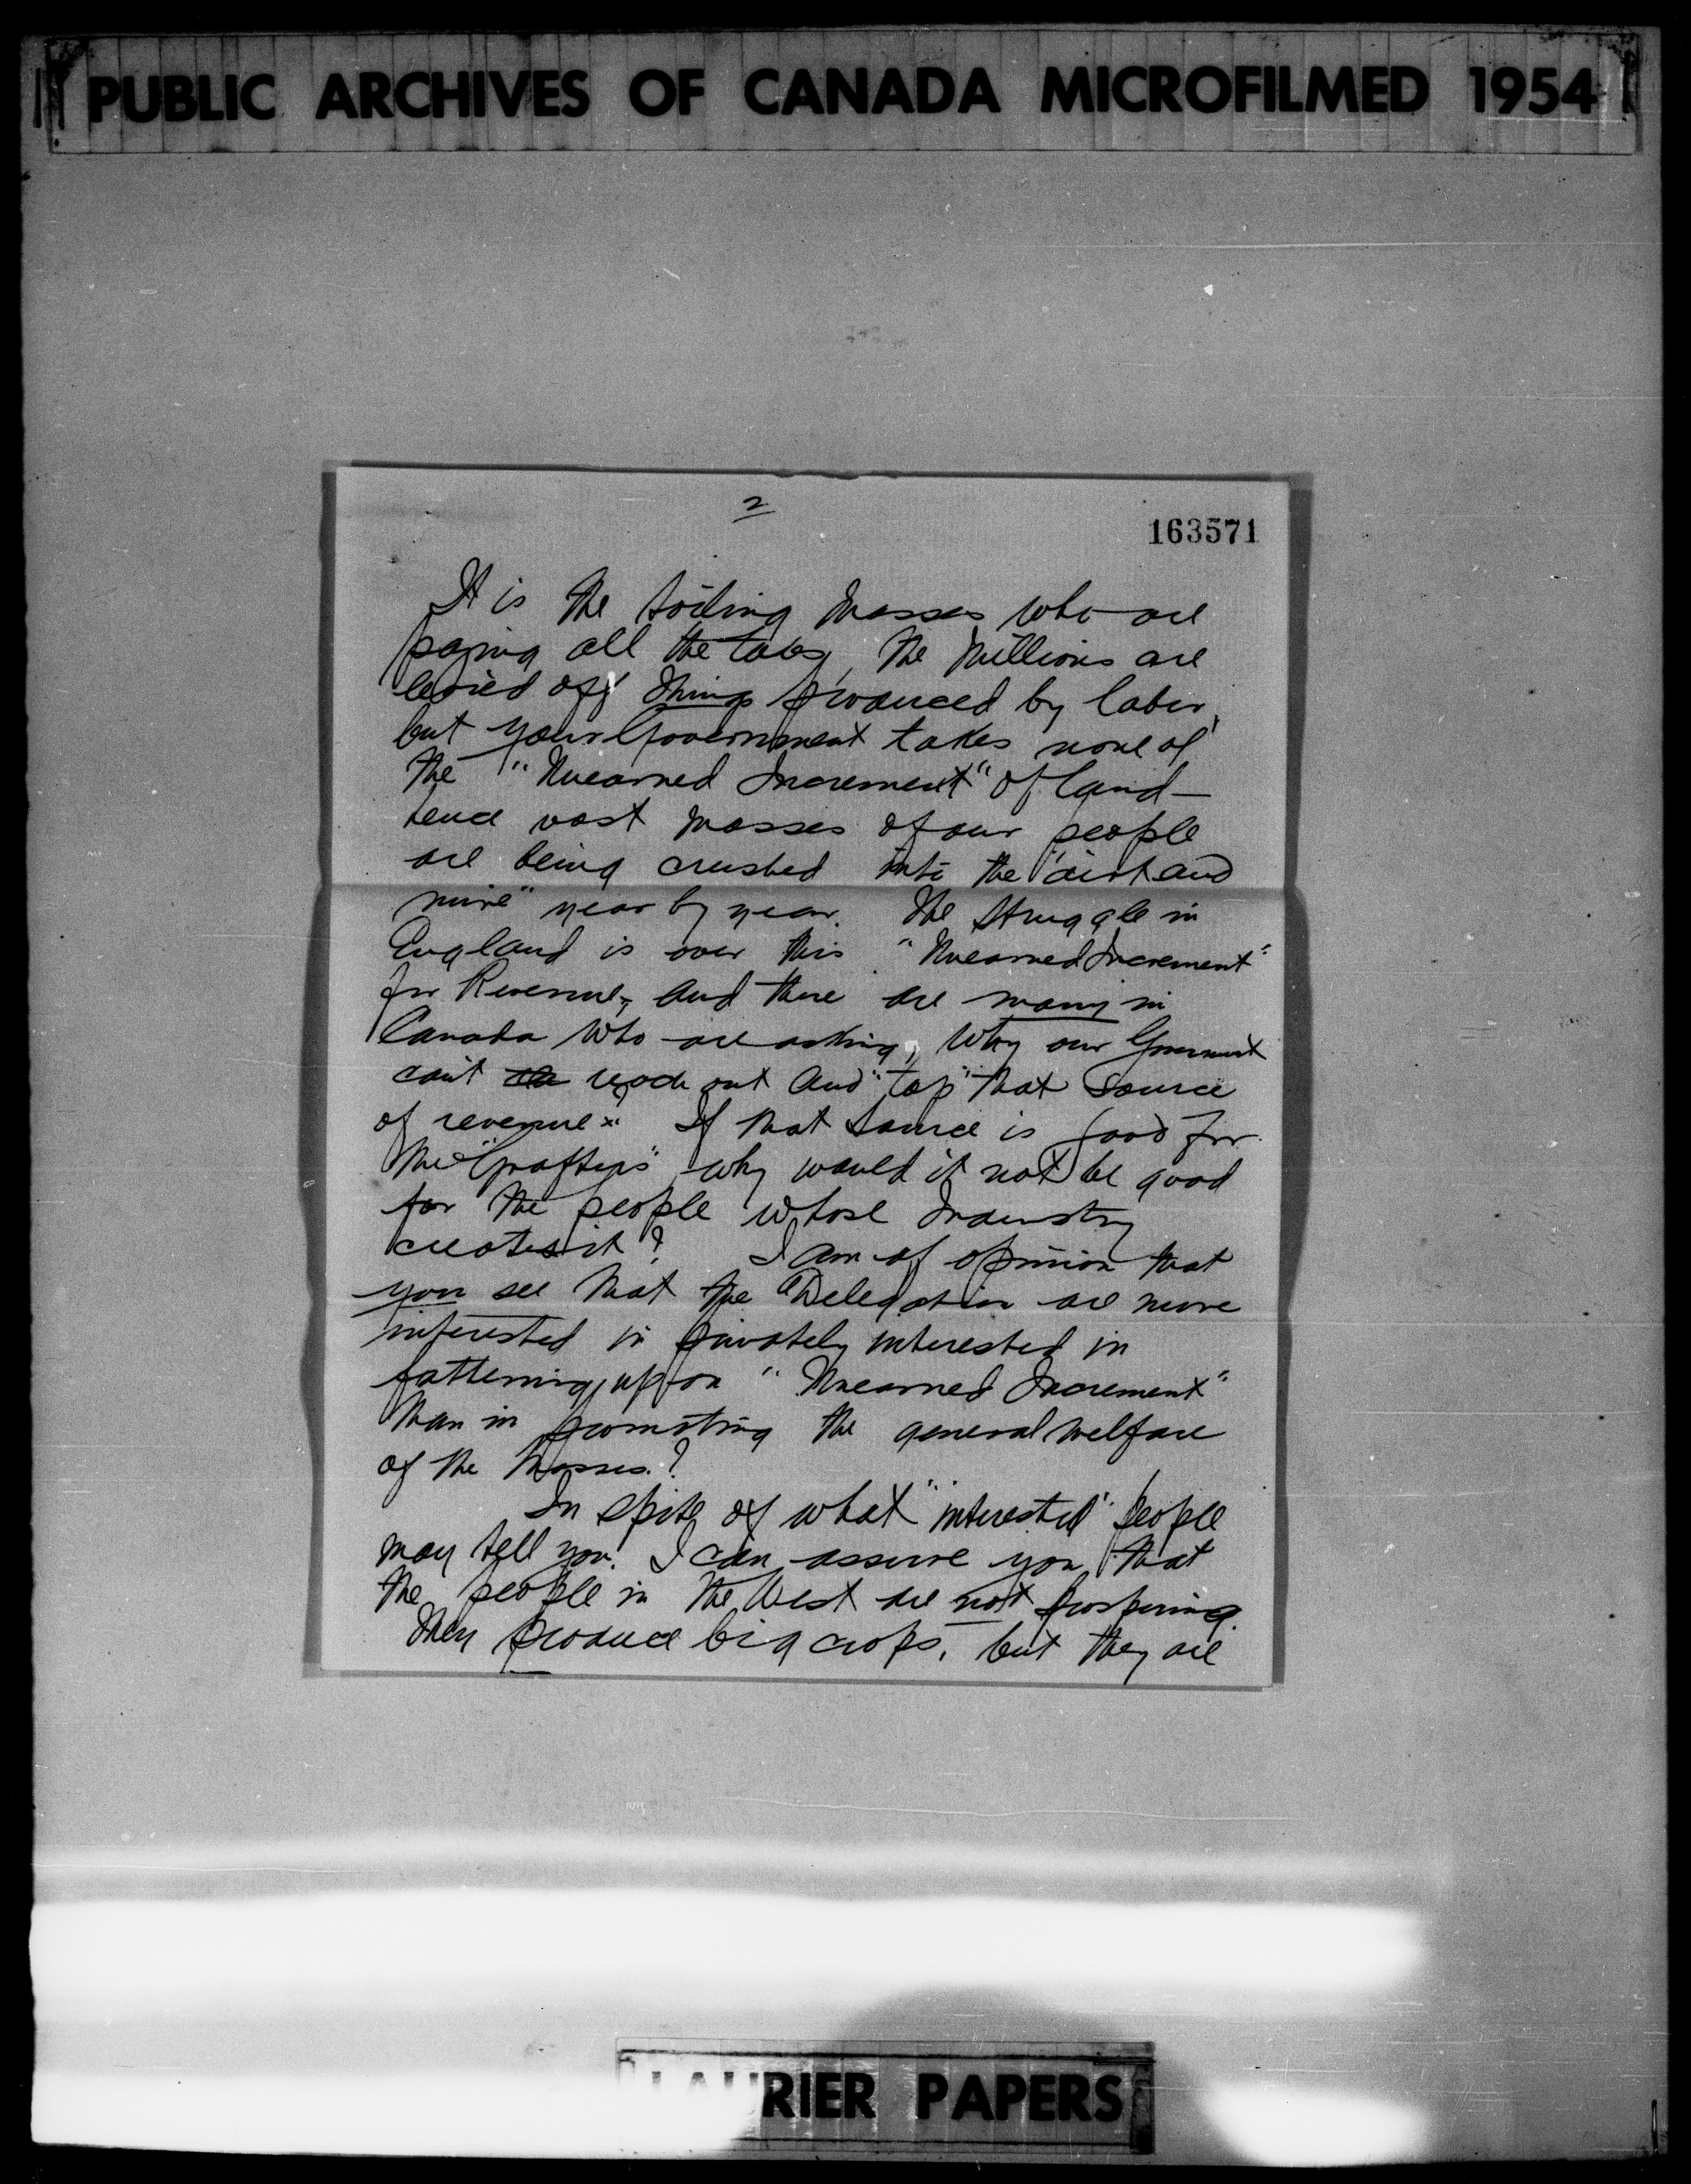 PUBLIC ARCHIVES OF CANADA MICROFILMED 1954
2
163571
It is the toiling masses who are
paying all the taxes, the Millions are
levied off things produced by labor,
but your Government takes none of
the "Unearned Increment" of land—
hence vast masses of our people
are being crushed into the "dirt and
mire" year by year. The struggle in
England is over this "Unearned Increment"
for Revenue, and there are many in
Canada who are asking, Why our Government
can't reach out and "tap" that source
of revenue? If that source is good for
the "Grafters" why would it not be good
for the people whose Industry
creates it? I am of opinion that
you see that the Delegation are more
interested in privately interested in
fattening up on "Unearned Increment"
than in promoting the general welfare
of the Masses?
In spite of what "interested" people
may tell you! I can assure you that
the people in the West are not prospering.
They produce big crops, but they are
LAURIER PAPERS